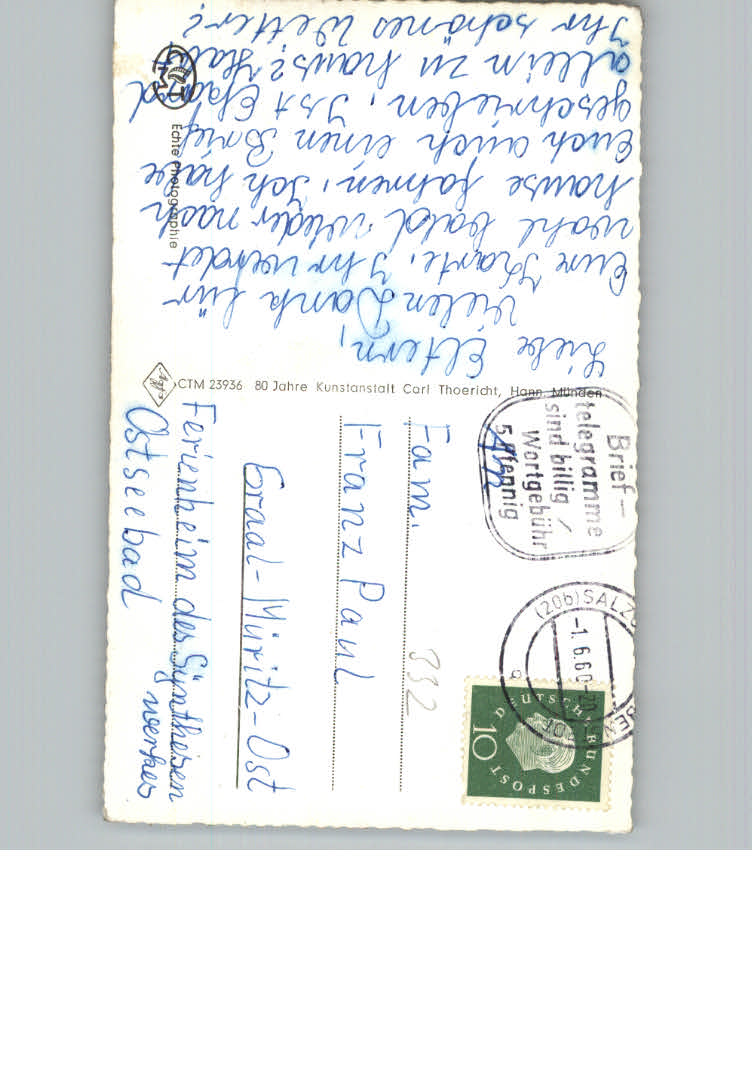 Liebe Eltern,
vielen Dank für
Eure Karte. Ihr werdet
wohl bald wieder nach
hause fahren. Ich habe
Euch auch einen Brief
geschrieben. Ist
allein zu haus? Habt
Ihr schönes Wetter?
CTM
Echte Photographie
Agfa
CTM 23936 80 Jahre Kunstanstalt Carl Thoericht, Hann. Münden
Brief-
telegramme
sind billig /
Wortgebühr
5 Pfennig
(20b) SALZG
-1.6.60-20
a
DEUTSCHE BUNDESPOST
10
332
Fam.
Franz Paul
Graal-Müritz-Ost
Ferienheim des Synthesen
werkes
Ostseebad